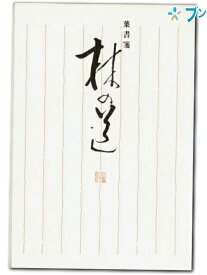 ブン
葉書箋
林の道